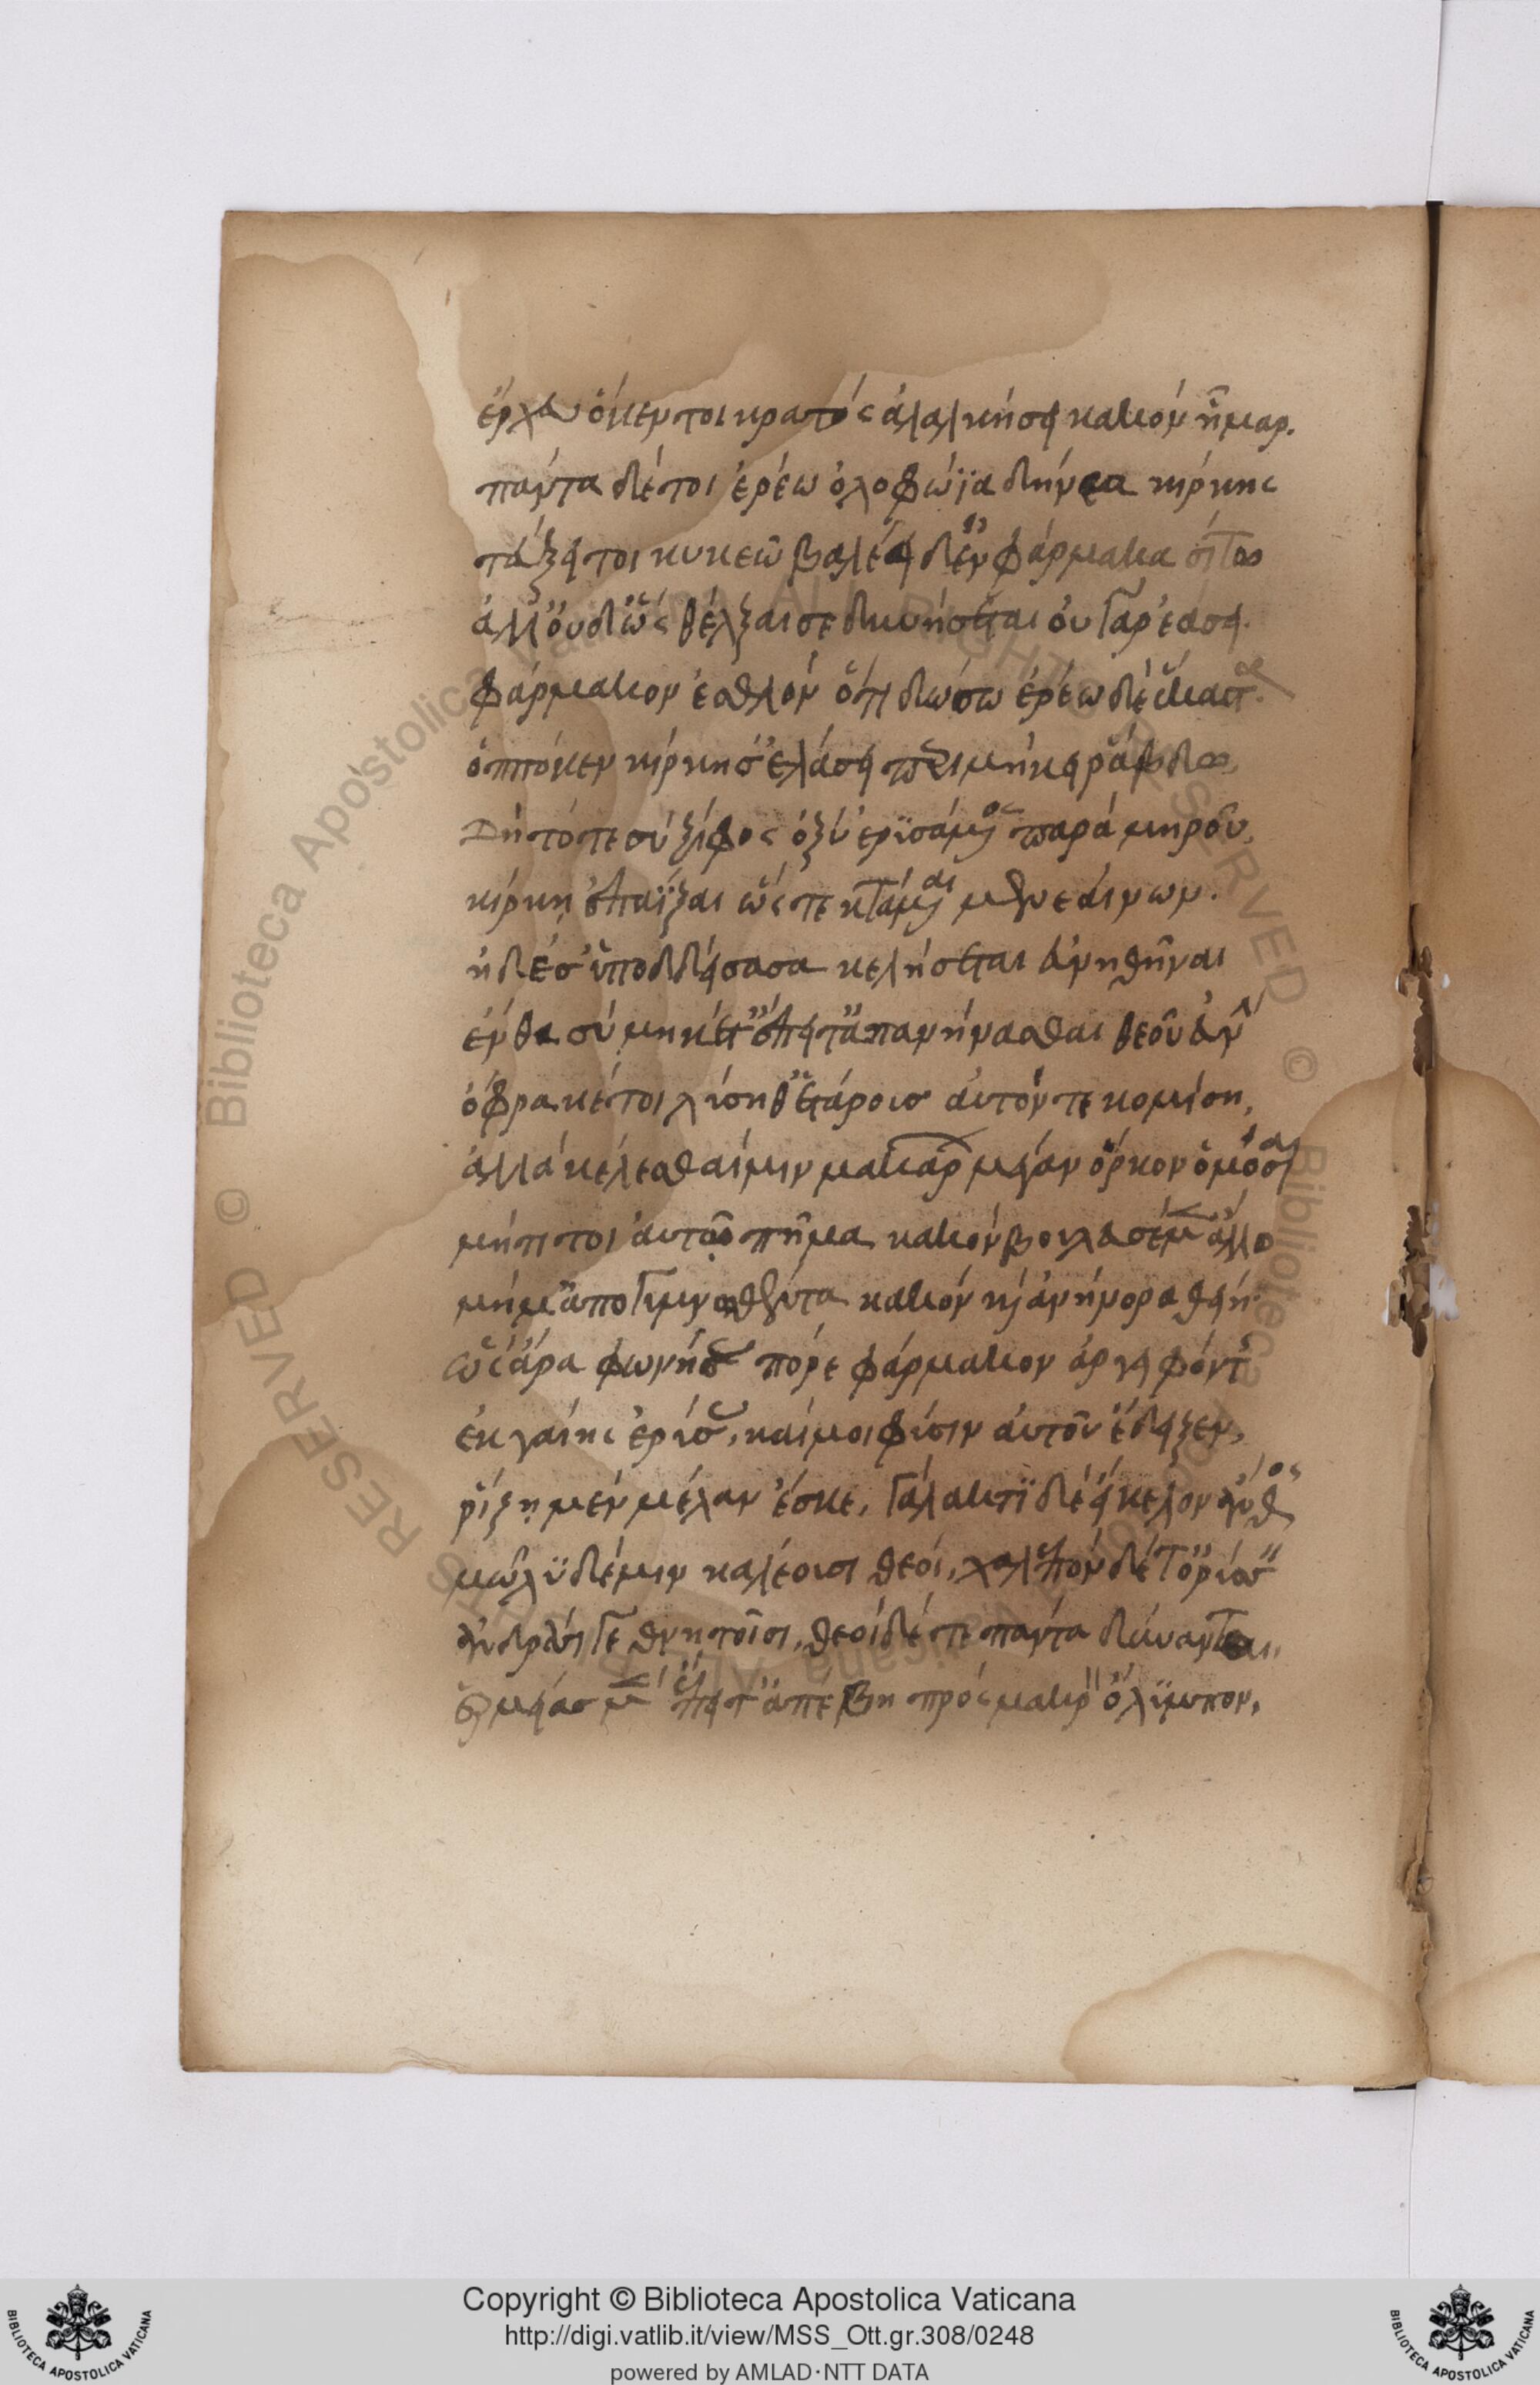 ἔρχευ ὅκεν τοι κρατὸς ἀλαλκήσει κακὸν ἦμαρ.
πάντα δέ τοι ἐρέω ὀλοφώϊα δήνεα κίρκης
τεύξει τοι κυκεῶ βαλέει δ' ἐν φάρμακα σίτω
ἀλλ' οὐδ' ὧς θέλξαι σε δυνήσεται οὐ γὰρ ἐάσει.
φάρμακον ἐσθλὸν ὅτι δώσω ἐρέω δὲ ἕκαστα.
ὁππόκεν κίρκη σ' ἐλάσει περιμήκει ῥάβδω,
Δὴ τότε σὺ ξίφος ὀξὺ ἐρϊσάμενος παρὰ μηροῦ,
κίρκη ἐπαΐξαι ὥς τε κτάμεναι μενεαίνων.
ἡ δέ σ' ὑποδδείσασα κελήσεται εὐνηθῆναι
ἔνθα σὺ μηκέτ' ἔπειτ' ἀπανήνασθαι θεοῦ εὐνὴν
ὄφρα κέ τοι λύση θ' ἑτάροις αὐτόν τε κομίση,
ἀλλὰ κέλεσθαί μιν μακάρων μέγαν ὅρκον ὀμόσαι
μήτι τοι αὐτῶ πῆμα κακὸν βουλευσέμεν ἄλλο
μή μ' ἀπογυμνωθέντα κακὸν καὶ ἀνήνορα θείη·
ὣς ἄρα φωνήσας πόρε φάρμακον ἀργειφόντης
ἐκ γαίης ἐρύσας, καί μοι φύσιν αὐτοῦ ἔδειξεν,
ῥίζη μὲν μέλαν ἔσκε, γάλακτϊ δὲ εἴκελον ἄνθος
μῶλϋ δέ μιν καλέουσι θεοί, χαλεπὸν δέ τ' ὀρύσσειν
ἀνδράσι γε θνητοῖσι, θεοὶ δέ τε πάντα δύνανται,
ἑρμείας μὲν ἔπειτ' ἀπέβη πρὸς μακρὸν ὄλϋμπον,
Copyright © Biblioteca Apostolica Vaticana
http://digi.vatlib.it/view/MSS_Ott.gr.308/0248
powered by AMLAD·NTT DATA